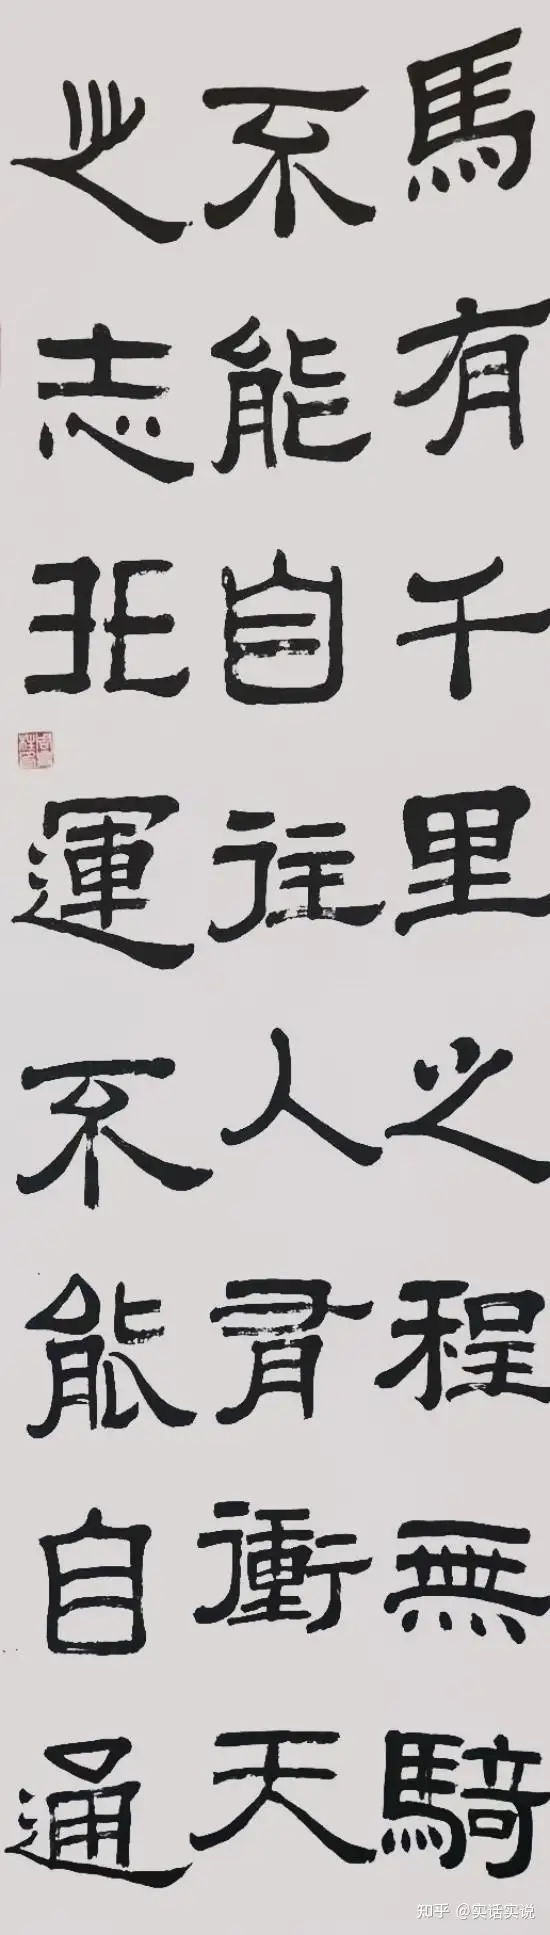 馬有千里之程無騎
不能自往人有衝天
之志非運不能自通
知乎 @实话实说